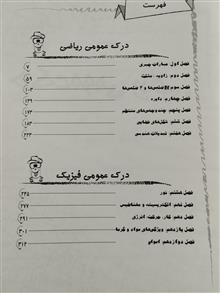 فهرست
درک عمومی ریاضی
فصل اول: عبارات جبری ۷
فصل دوم: زاویه، مثلث ۵۹
فصل سوم: ۱۰۳
فصل چهارم: دایره ۱۳۹
فصل پنجم: چندوجهی‌های منتظم ۱۷۳
فصل ششم: خط‌های فضایی ۱۸۳
فصل هفتم: تبدیلات هندسی ۲۲۳
درک عمومی فیزیک
فصل هشتم: نور ۲۴۵
فصل نهم: الکتریسیته و مغناطیس ۲۷۷
فصل دهم: کار، حرکت، انرژی ۲۹۱
فصل یازدهم: ویژگی‌های مواد و گرما ۳۰۱
فصل دوازدهم: امواج ۳۱۳